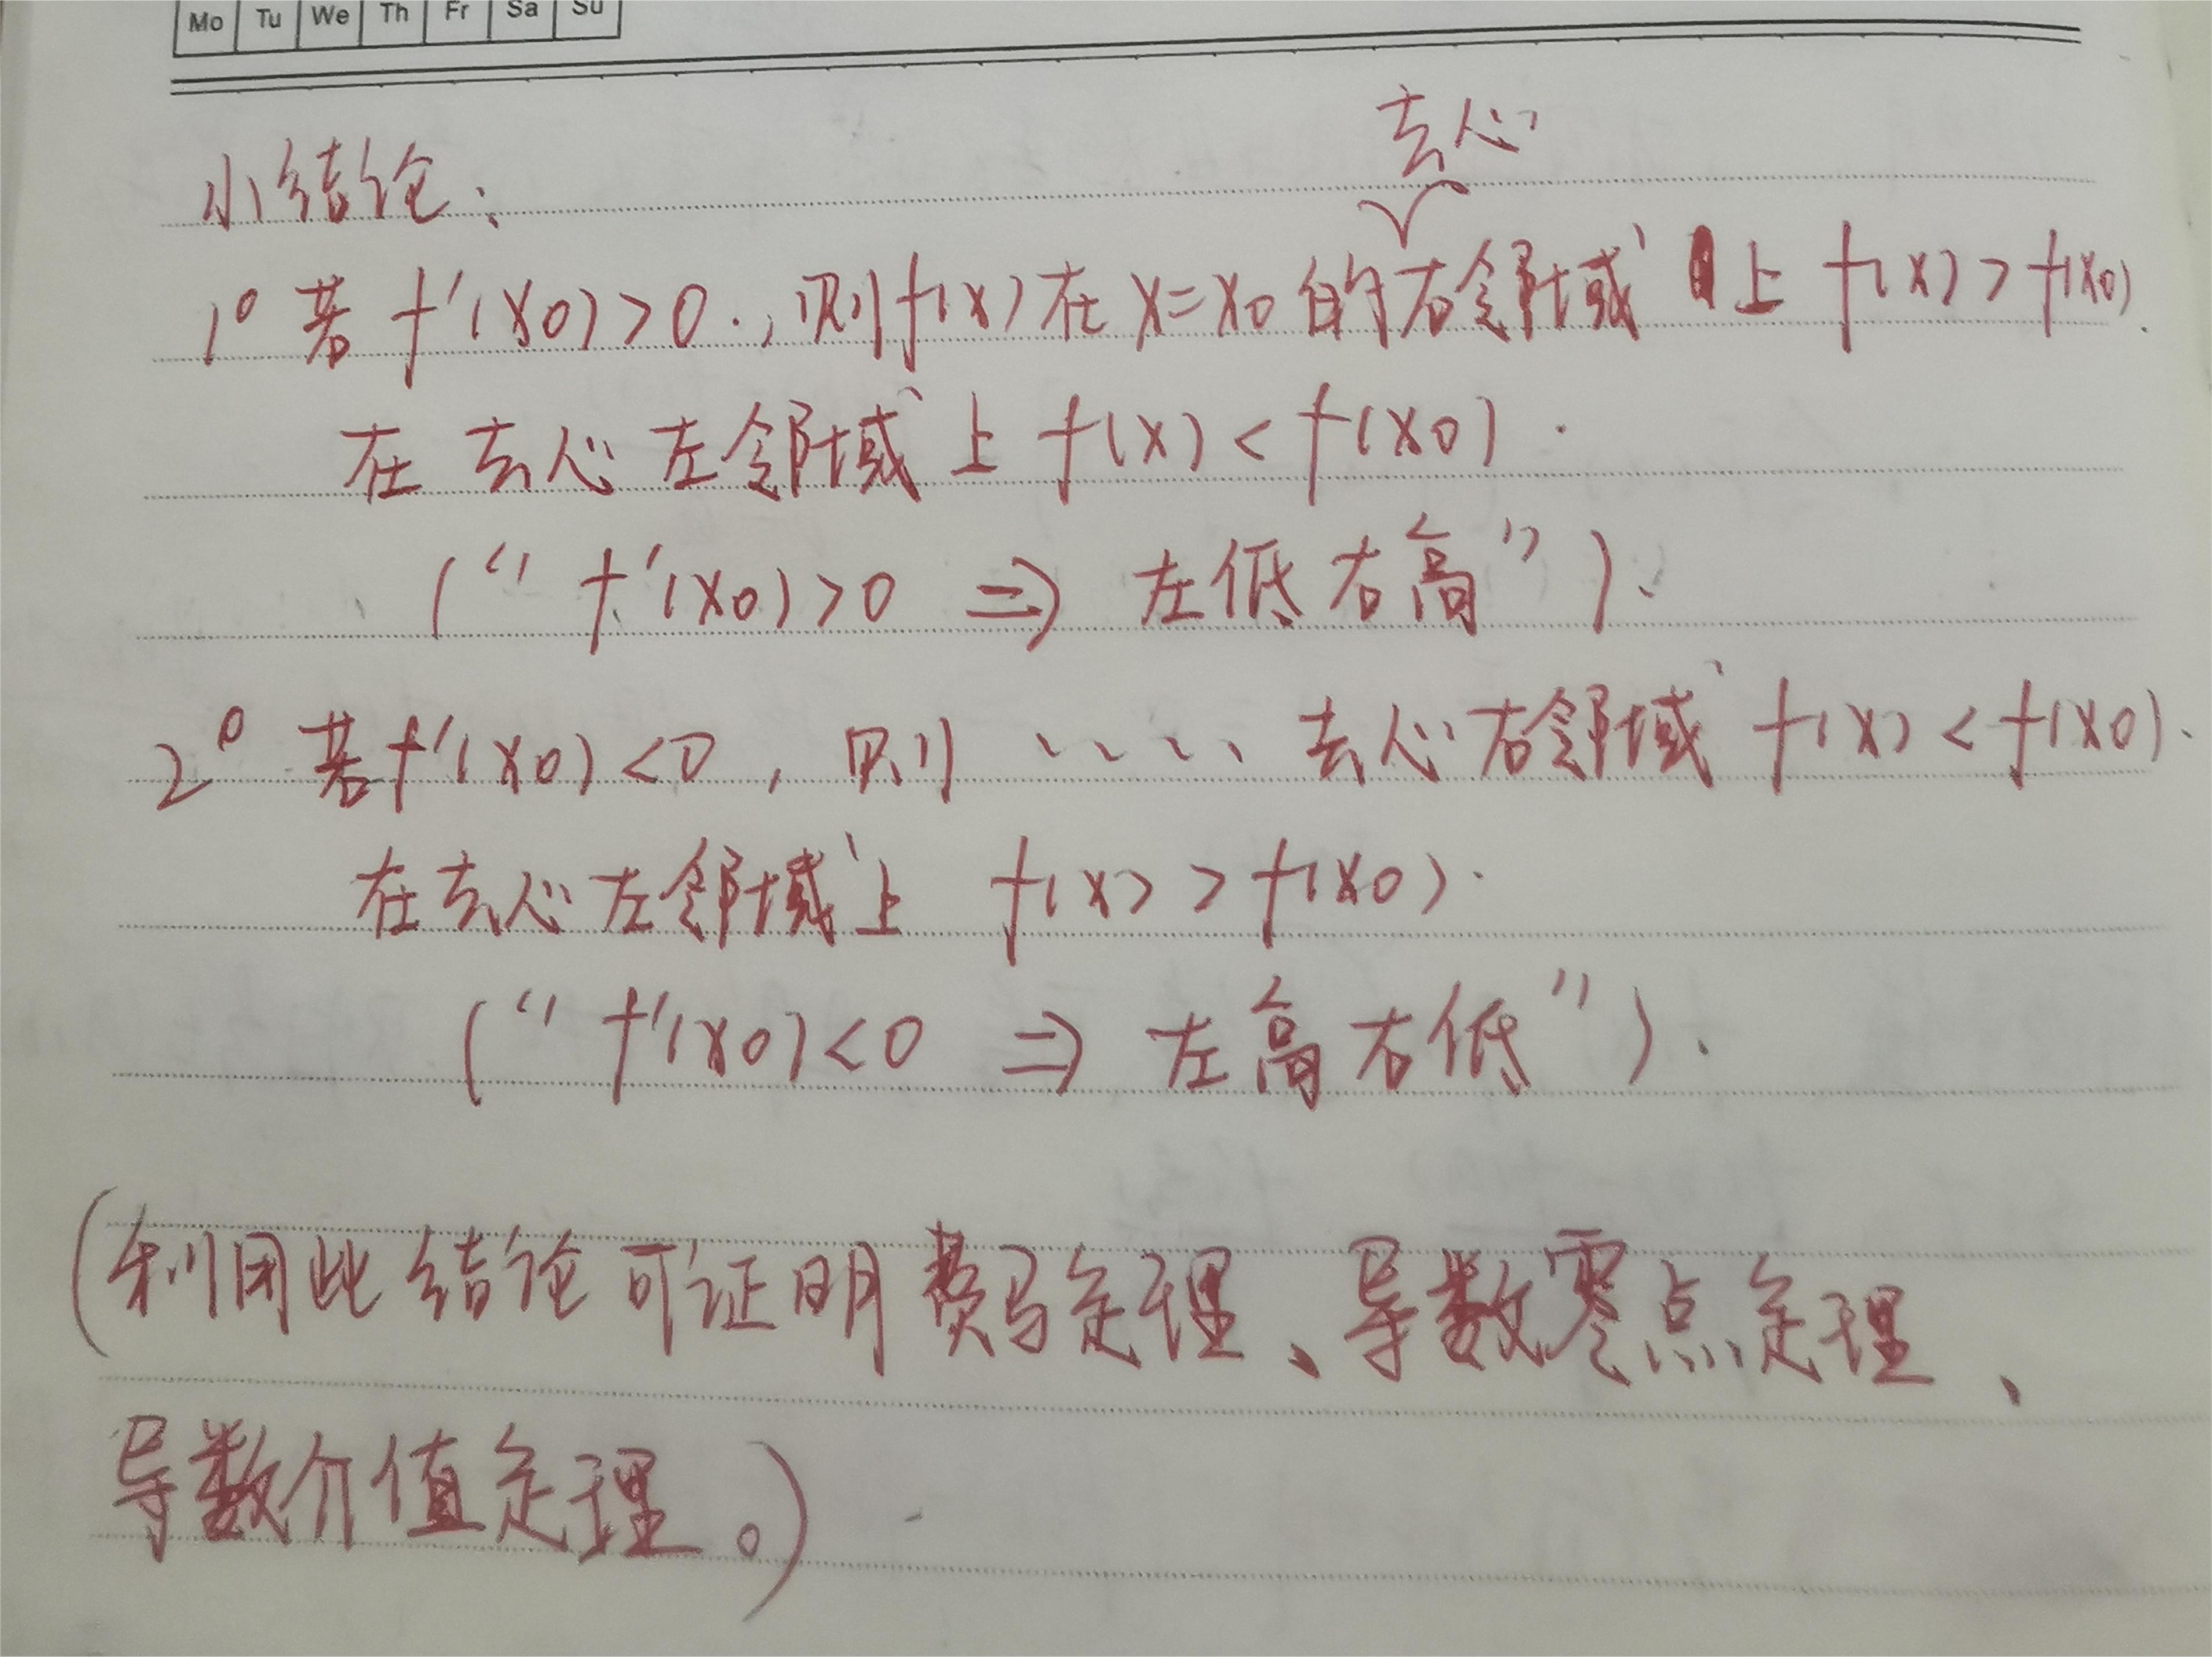 Mo Tu We Th Fr Sa Su
去心
小结论：
1° 若 f'(x0)>0.，则f(x)在x=x0的右邻域上 f(x)>f(x0).
在去心左邻域上 f(x)<f(x0).
(“f'(x0)>0 ⇒ 左低右高”).
2° 若f'(x0)<0，则 、、、、 去心右邻域 f(x)<f(x0).
在去心左邻域上 f(x)>f(x0).
(“f'(x0)<0 ⇒ 左高右低”).
(利用此结论可证明费马定理、导数零点定理、
导数介值定理。)